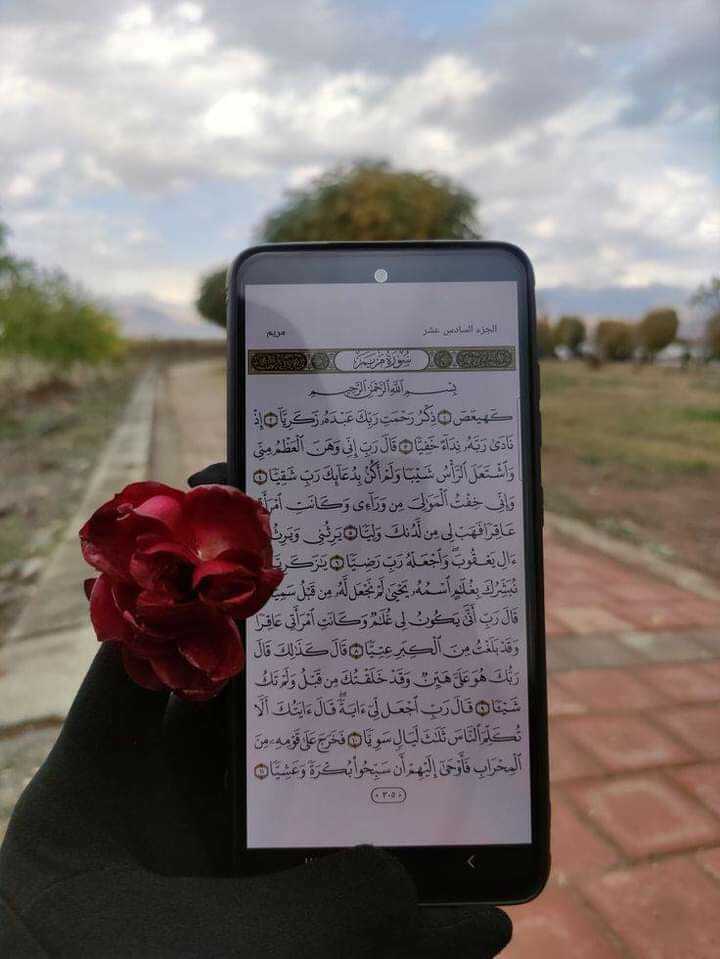 الجزء السادس عشر
مريم
سُورَةُ مَرْيَمَ
بِسْمِ ٱللَّهِ ٱلرَّحْمَٰنِ ٱلرَّحِيمِ
كٓهيعٓصٓ ١ ذِكْرُ رَحْمَتِ رَبِّكَ عَبْدَهُۥ زَكَرِيَّآ ٢ إِذْ
نَادَىٰ رَبَّهُۥ نِدَآءً خَفِيًّا ٣ قَالَ رَبِّ إِنِّي وَهَنَ ٱلْعَظْمُ مِنِّي
وَٱشْتَعَلَ ٱلرَّأْسُ شَيْبًا وَلَمْ أَكُنۢ بِدُعَآئِكَ رَبِّ شَقِيًّا ٤
وَإِنِّي خِفْتُ ٱلْمَوَٰلِيَ مِن وَرَآءِي وَكَانَتِ ٱمْرَأَتِي
عَاقِرًا فَهَبْ لِي مِن لَّدُنكَ وَلِيًّا ٥ يَرِثُنِي وَيَرِثُ
مِنْ ءَالِ يَعْقُوبَ وَٱجْعَلْهُ رَبِّ رَضِيًّا ٦ يَٰزَكَرِيَّآ
إِنَّا نُبَشِّرُكَ بِغُلَٰمٍ ٱسْمُهُۥ يَحْيَىٰ لَمْ نَجْعَل لَّهُۥ مِن قَبْلُ سَمِيًّا
قَالَ رَبِّ أَنَّىٰ يَكُونُ لِي غُلَٰمٌ وَكَانَتِ ٱمْرَأَتِي عَاقِرًا
وَقَدْ بَلَغْتُ مِنَ ٱلْكِبَرِ عِتِيًّا ٨ قَالَ كَذَٰلِكَ قَالَ
رَبُّكَ هُوَ عَلَيَّ هَيِّنٌ وَقَدْ خَلَقْتُكَ مِن قَبْلُ وَلَمْ تَكُ
شَيْـًٔا ٩ قَالَ رَبِّ ٱجْعَل لِّيٓ ءَايَةً قَالَ ءَايَتُكَ أَلَّا
تُكَلِّمَ ٱلنَّاسَ ثَلَٰثَ لَيَالٍ سَوِيًّا ١٠ فَخَرَجَ عَلَىٰ قَوْمِهِۦ مِنَ
ٱلْمِحْرَابِ فَأَوْحَىٰٓ إِلَيْهِمْ أَن سَبِّحُوا۟ بُكْرَةً وَعَشِيًّا ١١
٣٠٥